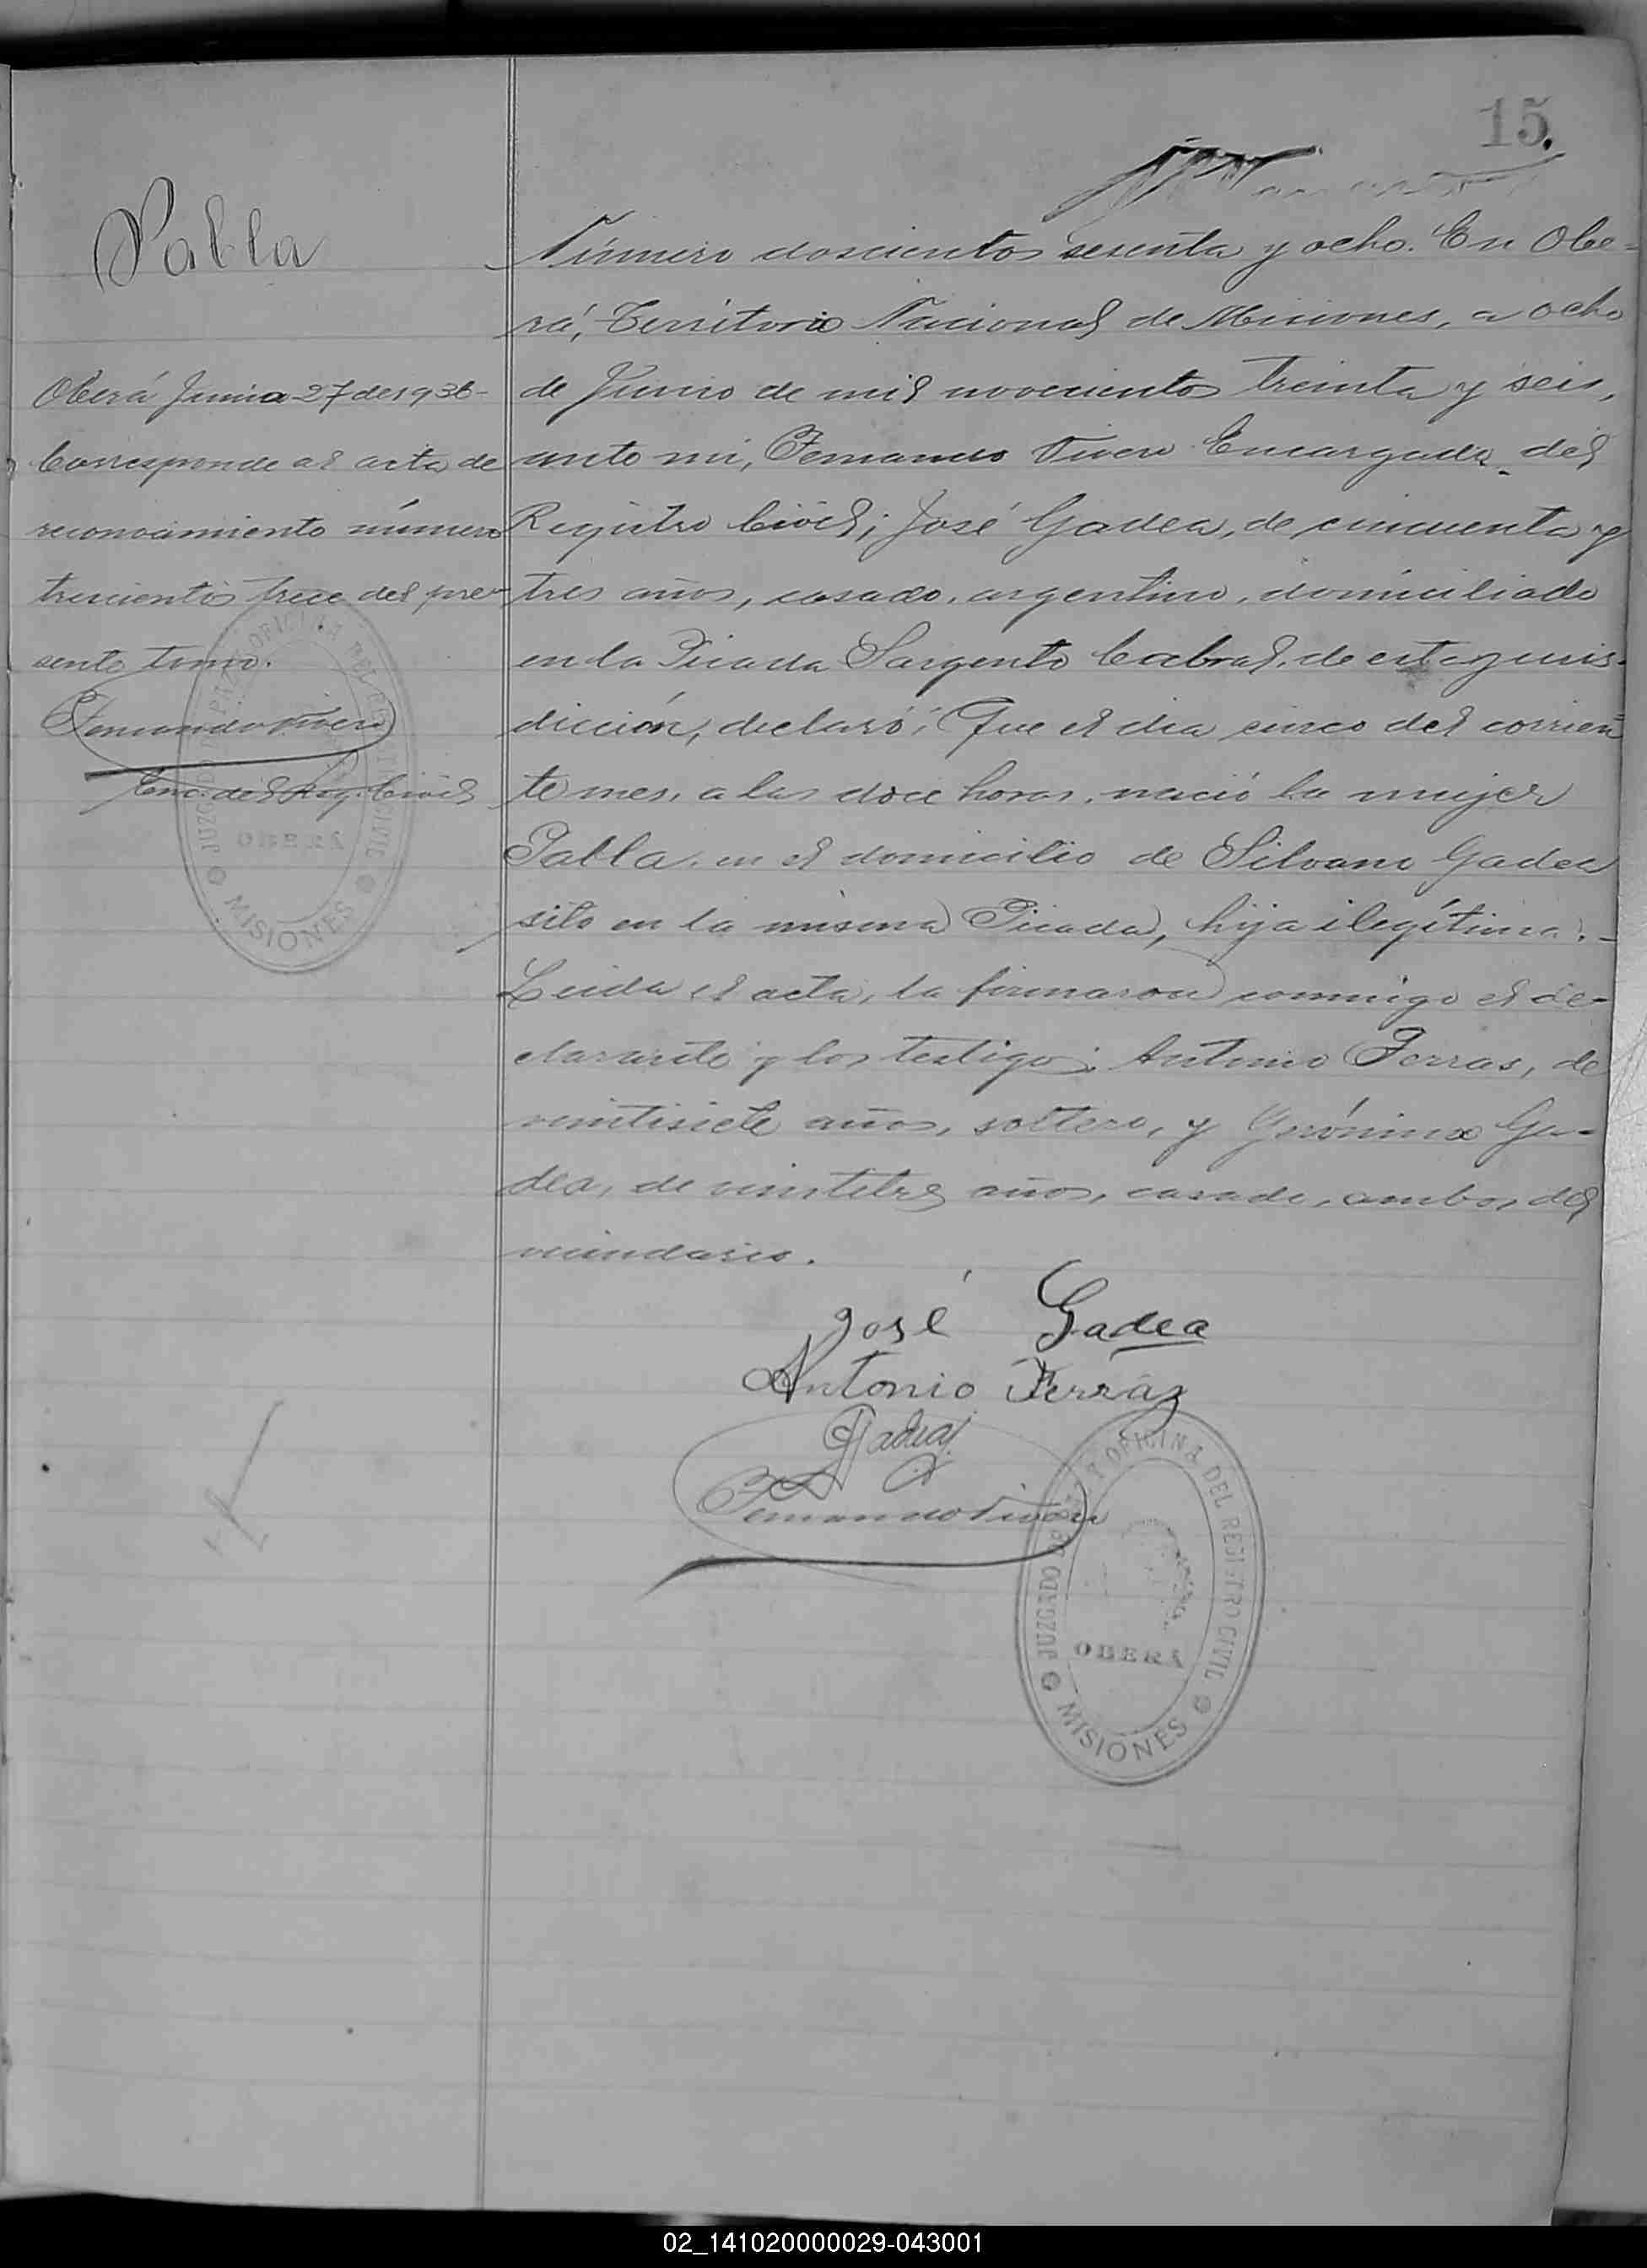 15.
Pabla
Número doscientos sesenta y ocho. En Obe-
rá, Territorio Nacional de Misiones, a ocho
de Junio de mil novecientos treinta y seis,
ante mi, Fernando Vivero Encargado del
Registro Civil; José Gadea, de cincuenta y
tres años, casado, argentino, domiciliado
en la Picada Sargento Cabral, de esta juris-
dicción, declaró: Que el dia cinco del corrien
te mes, a las doce horas, nació la mujer
Pabla, en el domicilio de Silvano Gadea
sito en la misma Picada, hija ilegítima.-
Leida el acta, la firmaron conmigo el de-
clarante y los testigos: Antonio Ferras, de
veintisiete años, soltero, y Gerónimo Ga-
dea, de veintitres años, casado, ambos del
vecindario.
José Gadea
Antonio Ferráz
Gadea
Fernando Vivero
Oberá Junio 27 de 1936-
Corresponde al acta de
reconocimiento número
trescientos trece del pre-
sente tomo.
Fernando Vivero
Enc. del Reg. Civil
JUZGADO DE PAZ Y OFICINA DEL REGISTRO CIVIL
OBERÁ
MISIONES
JUZGADO DE PAZ Y OFICINA DEL REGISTRO CIVIL
OBERÁ
MISIONES
02_141020000029-043001